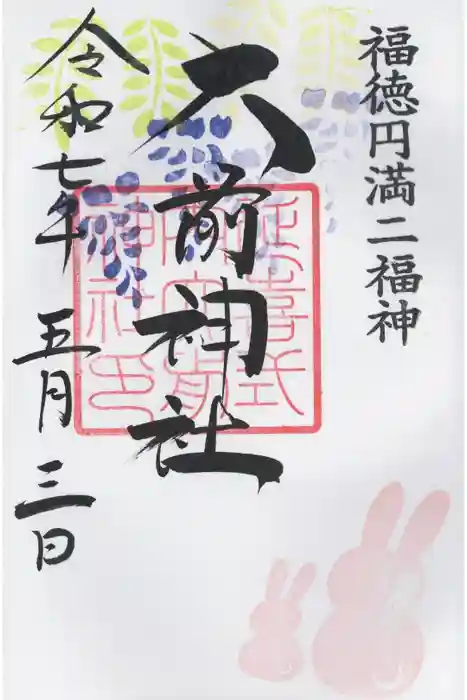 福徳円満二福神
大前神社
延喜式
神社印
令和七年 五月 三日